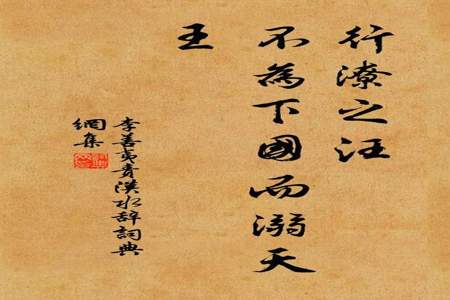 行潦之汪
不為下國而溺天
王
李善夷責漢水辭詞典
網集